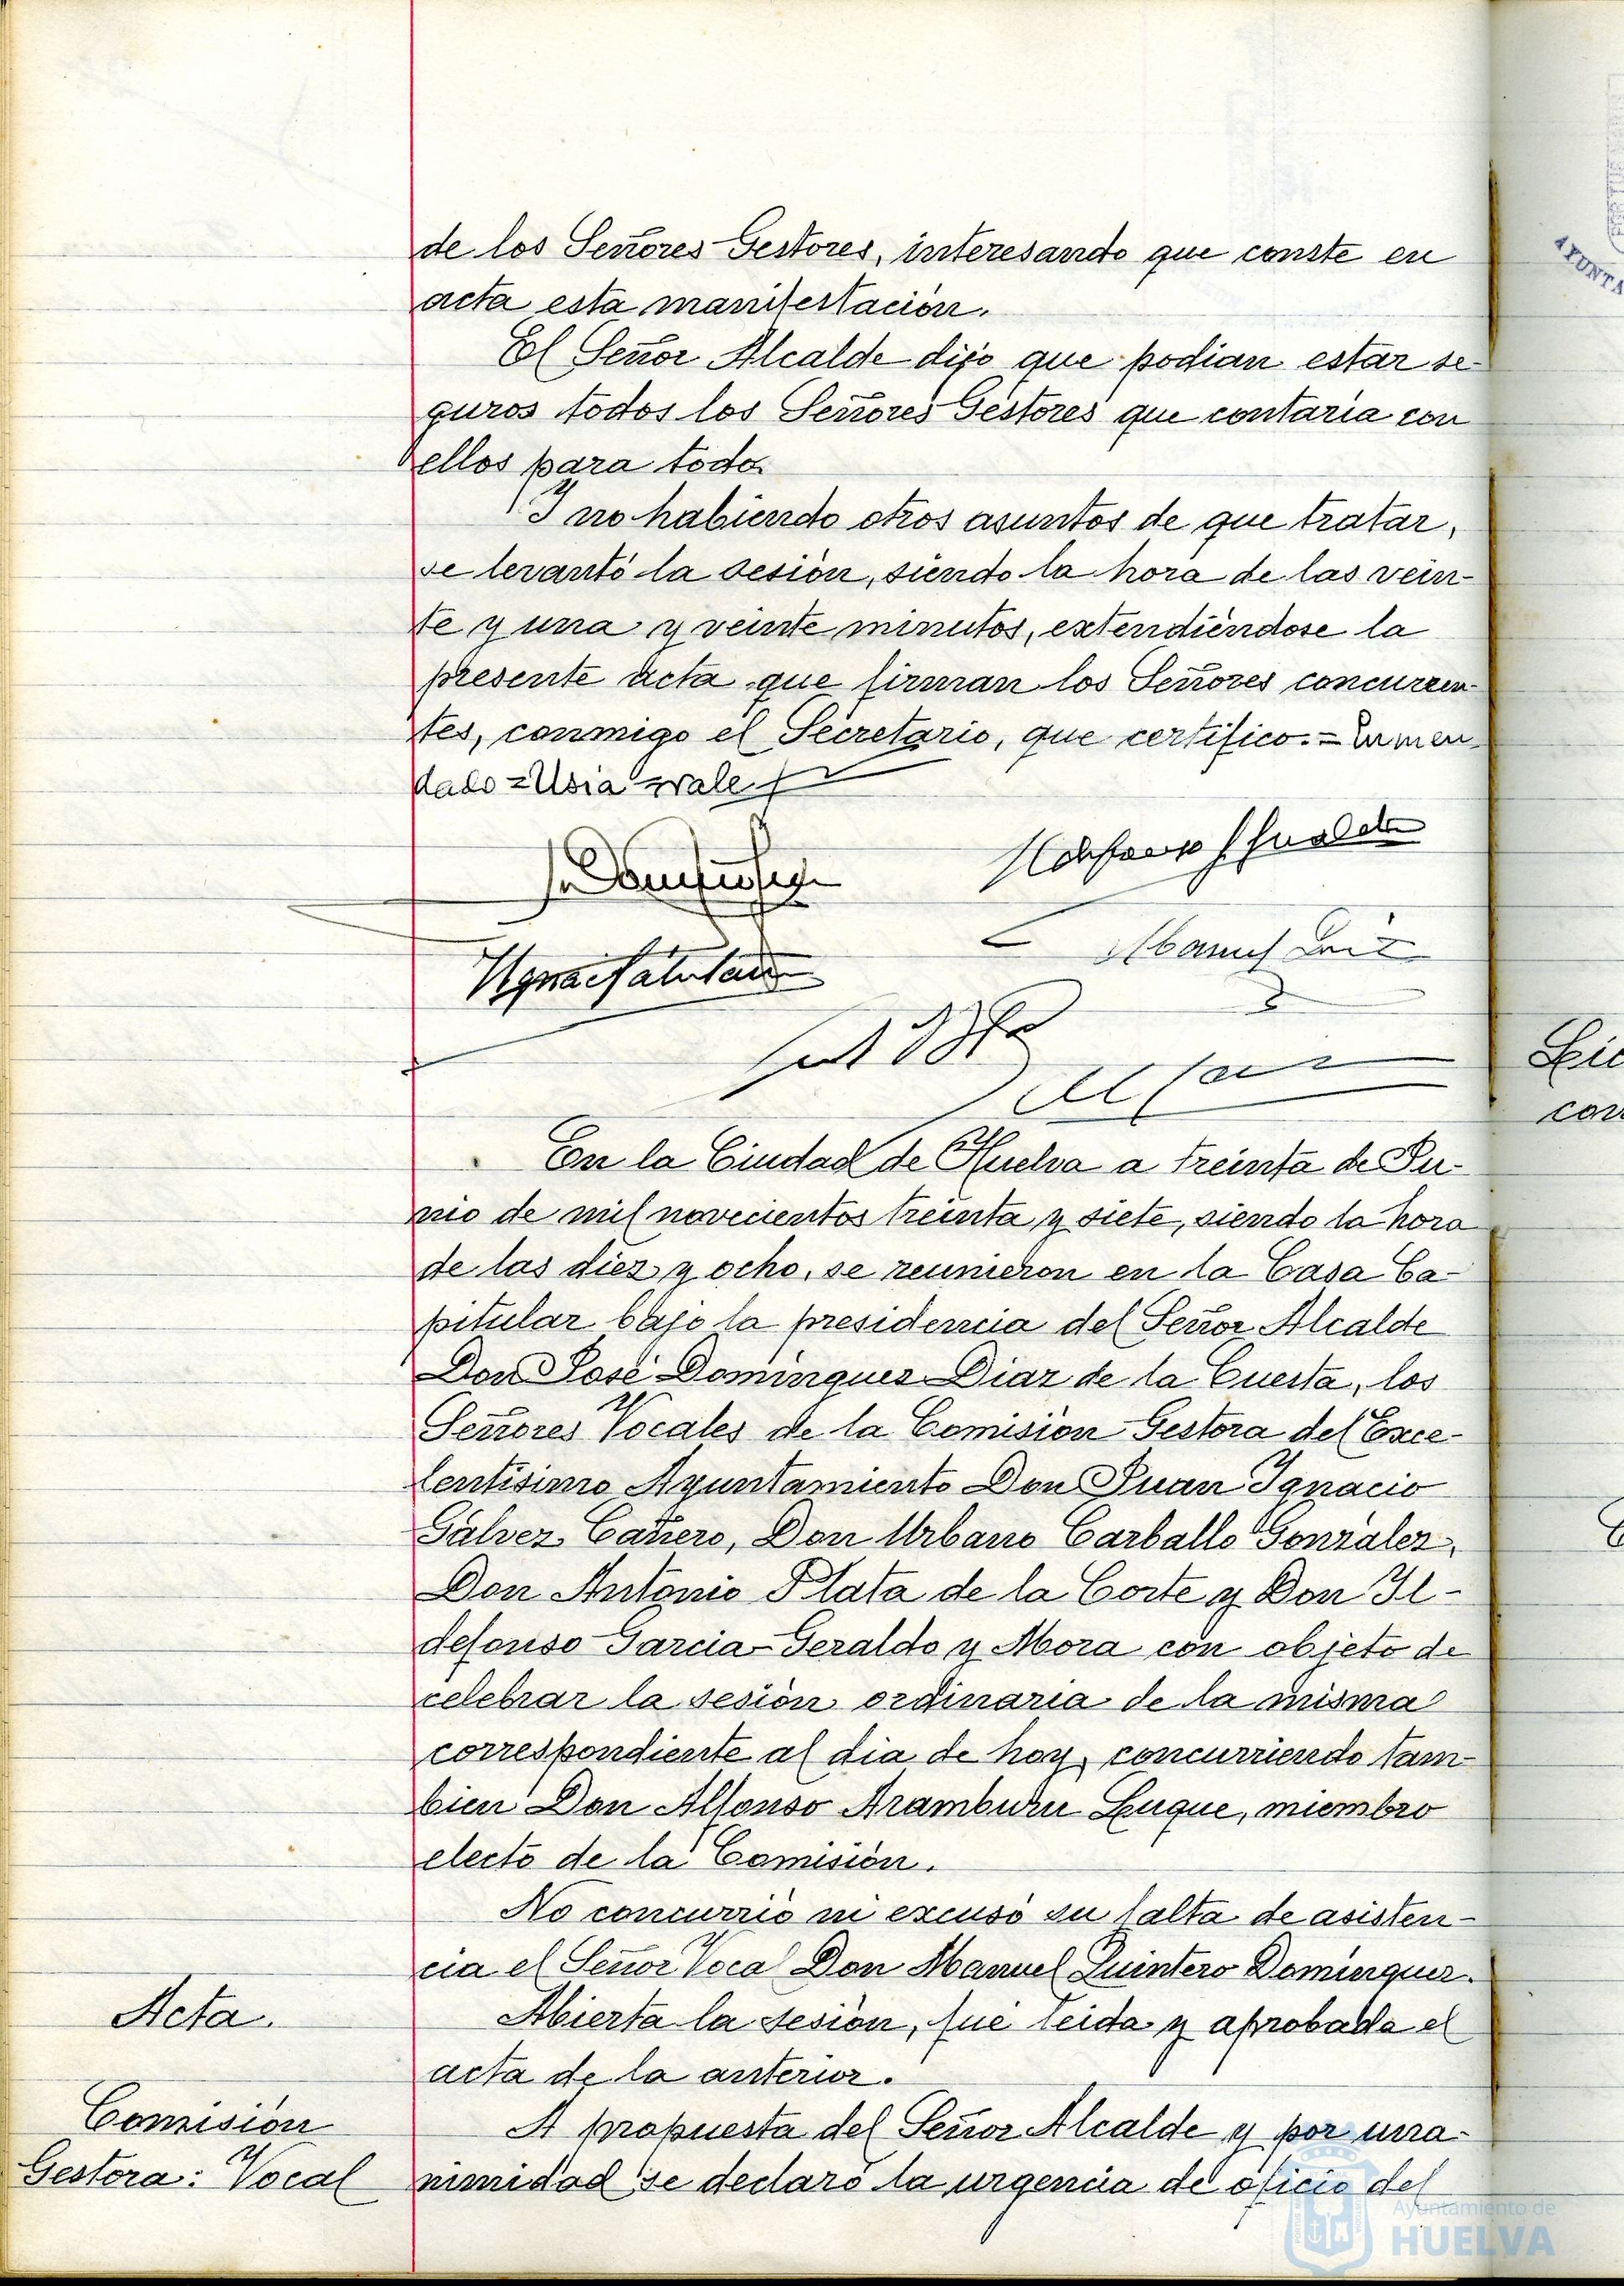 de los Señores Gestores, interesando que conste en
acta esta manifestación.
El Señor Alcalde dijo que podian estar se-
guros todos los Señores Gestores que contaria con
ellos para todo.
Y no habiendo otros asuntos de que tratar,
se levantó la sesión, siendo la hora de las vein-
te y una y veinte minutos, extendiéndose la
presente acta que firman los Señores concurren-
tes, conmigo el Secretario, que certifico.=Enmen-
dado=Usia=vale.
En la Ciudad de Huelva a treinta de Ju-
nio de mil novecientos treinta y siete, siendo la hora
de las diez y ocho, se reunieron en la Casa Ca-
pitular bajo la presidencia del Señor Alcalde
Don José Dominguez Diaz de la Cuesta, los
Señores Vocales de la Comisión Gestora del Exce-
lentisimo Ayuntamiento Don Juan Ignacio
Gálvez Cañero, Don Urbano Carballo González,
Don Antonio Plata de la Corte y Don Il-
defonso Garcia-Geraldo y Mora con objeto de
celebrar la sesión ordinaria de la misma
correspondiente al dia de hoy, concurriendo tam-
bien Don Alfonso Aramburu Luque, miembro
electo de la Comisión.
No concurrió ni excusó su falta de asisten-
cia el Señor Vocal Don Manuel Quintero Dominguez.
Acta.
Abierta la sesión, fué leida y aprobada el
acta de la anterior.
Comisión
Gestora: Vocal
A propuesta del Señor Alcalde y por una-
nimidad se declaró la urgencia de oficio del
Ayuntamiento de
HUELVA
AYUNTA